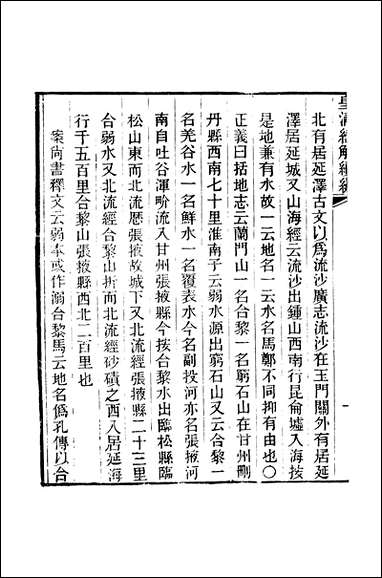 皇清經解續編
北有居延澤古文以爲流沙廣志流沙在玉門關外有居延
澤居延城又山海經云流沙出鍾山西南行昆侖墟入海按
是地兼有水故一云地名一云水名馬鄭不同抑有由也〇
正義曰括地志云蘭門山一名合黎一名窮石山在甘州刪
丹縣西南七十里淮南子云弱水源出窮石山又云合黎一
名羌谷水一名鮮水一名覆表水今名副投河亦名張掖河
南自吐谷渾畍流入甘州張掖縣今按合黎水出臨松縣臨
松山東而北流歷張掖故城下又北流經張掖縣二十三里
合弱水又北流經合黎山折而北流經砂磧之西入居延海
行千五百里合黎山張掖縣西北二百里也
案尙書釋文云弱本或作溺合黎馬云地名僞孔傳以合